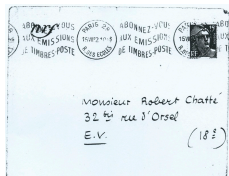 nrf
ABONNEZ-VOUS
AUX EMISSIONS
DE TIMBRES-POSTE
PARIS
ABONNEZ-VOUS
AUX EMISSIONS
DE TIMBRES-POSTE
Monsieur Robert Chatté
32 bis rue d'Orsel
E.V.
(18e)